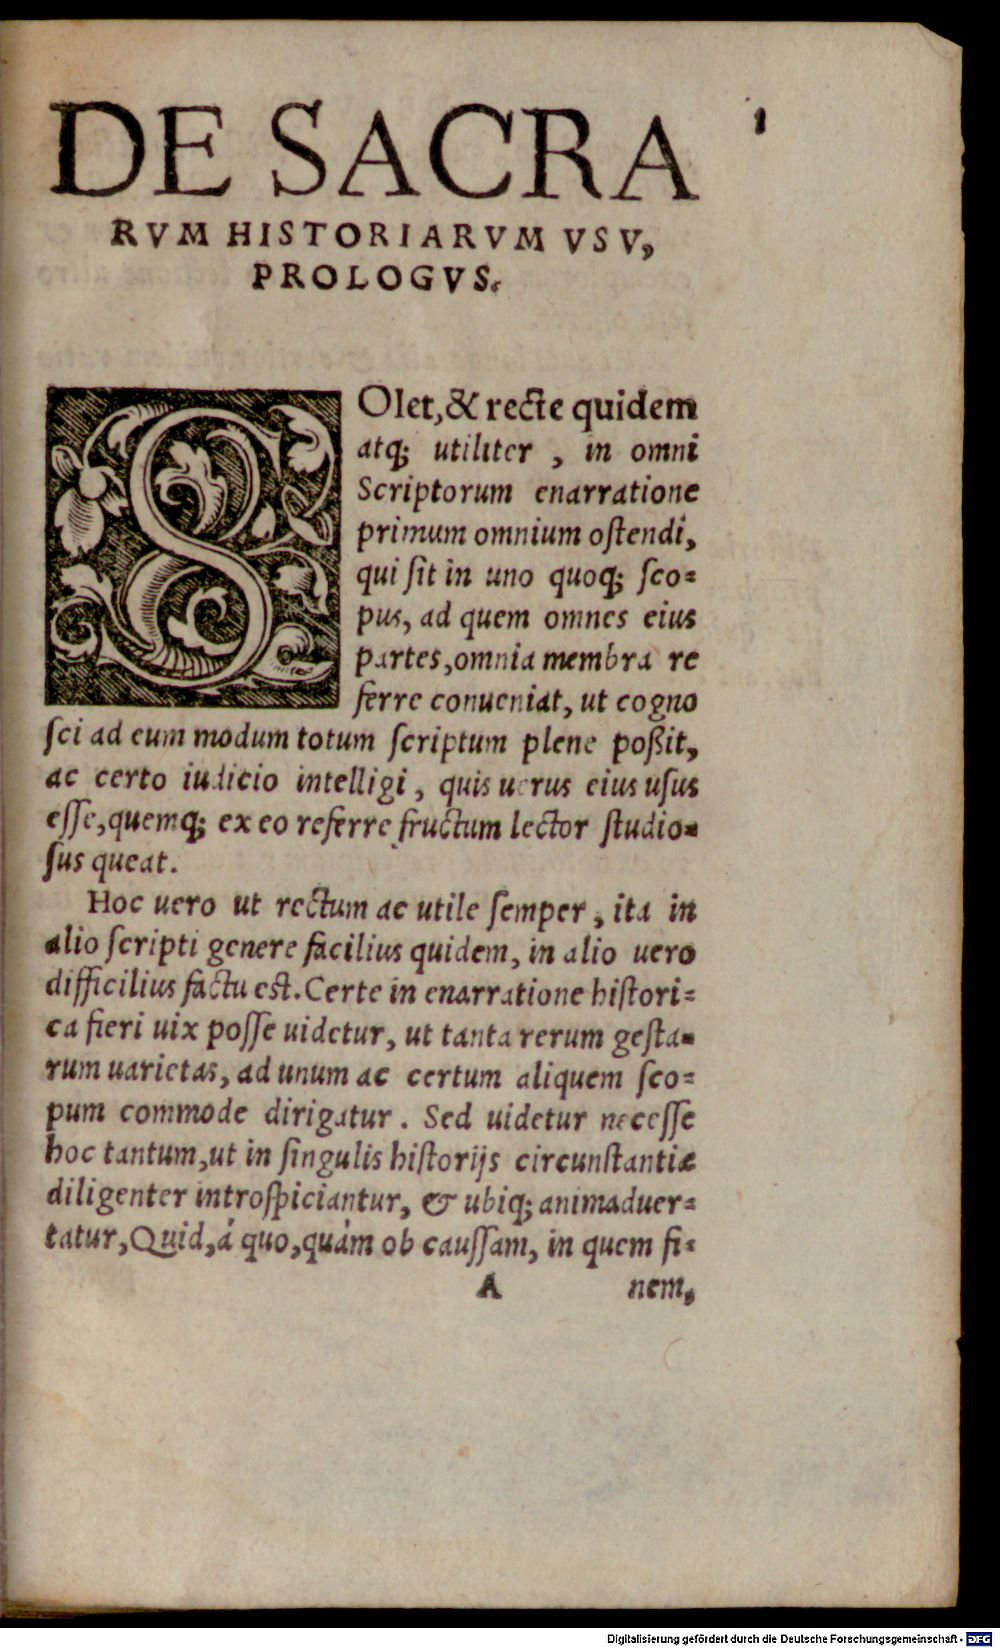 1
DE SACRA
RVM HISTORIARVM VSV,
PROLOGVS.
SOlet, & recte quidem
atq; utiliter , in omni
Scriptorum enarratione
primum omnium oſtendi,
qui ſit in uno quoq; ſco=
pus, ad quem omnes eius
partes, omnia membra re
ferre conueniat, ut cogno
ſci ad eum modum totum ſcriptum plene poßit,
ac certo iudicio intelligi, quis uerus eius uſus
eſſe, quemq; ex eo referre fructum lector ſtudio=
ſus queat.
Hoc uero ut rectum ac utile ſemper, ita in
alio ſcripti genere facilius quidem, in alio uero
difficilius factu est. Certe in enarratione hiſtori=
ca fieri uix poſſe uidetur, ut tanta rerum geſta=
rum uarietas, ad unum ac certum aliquem ſco=
pum commode dirigatur. Sed uidetur neceſſe
hoc tantum, ut in ſingulis hiſtorijs circunſtantiæ
diligenter introſpiciantur, & ubiq; animaduer=
tatur, Quid, á quo, quám ob cauſſam, in quem fi=
A nem,
Digitalisierung gefördert durch die Deutsche Forschungsgemeinschaft - DFG